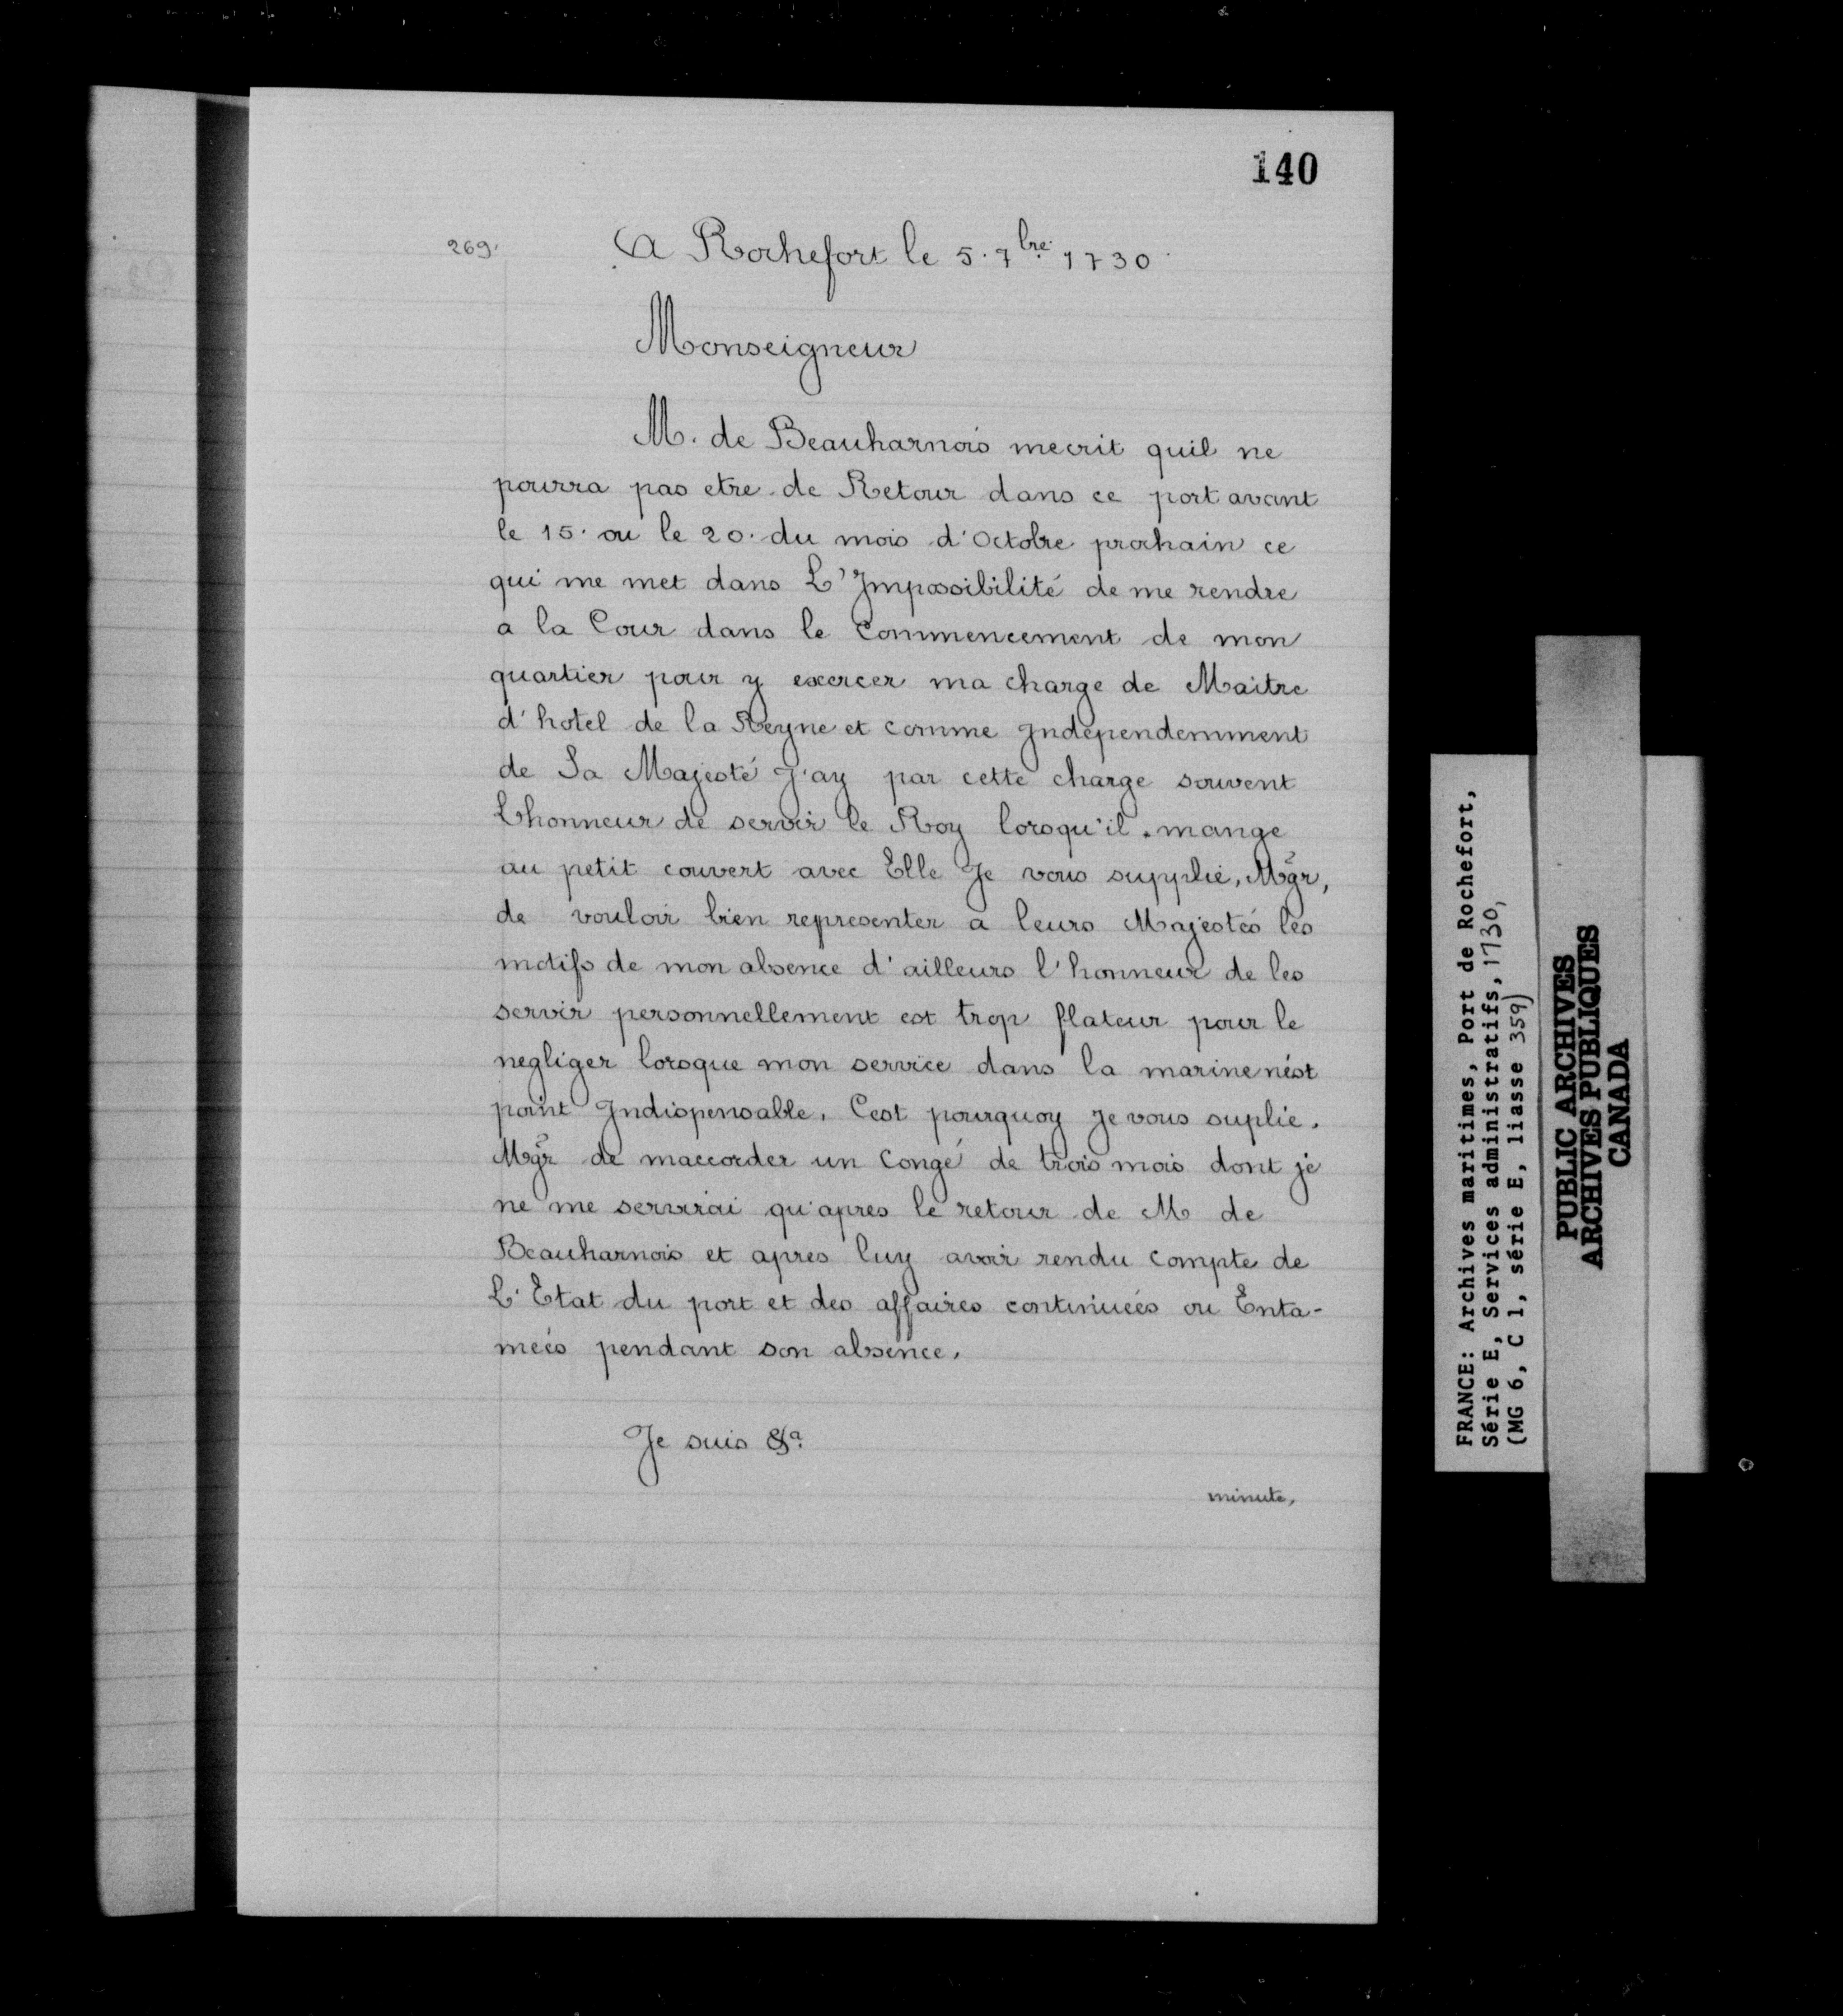 140
269.
A Rochefort le 5. 7bre 1730.
Monseigneur
M. de Beauharnois mecrit quil ne
pourra pas etre de Retour dans ce port avant
le 15. ou le 20. du mois d'Octobre prochain ce
qui me met dans L'Impossibilité de me rendre
a la Cour dans le Commencement de mon
quartier pour y exercer ma charge de Maitre
d'hotel de la Reyne et comme Independemment
de Sa Majesté J'ay par cette charge souvent
Lhonneur de servir le Roy lorsqu'il mange
au petit couvert avec Elle Je vous supplie, Mgr,
de vouloir bien representer a leurs Majestés les
motifs de mon absence d'ailleurs l'honneur de les
servir personnellement est trop flateur pour le
negliger lorsque mon service dans la marine n'est
point Indispensable. Cest pourquoy je vous suplie.
Mgr de maccorder un Congé de trois mois dont je
ne me servirai qu'apres le retour de M de
Beauharnois et apres luy avoir rendu compte de
L'Etat du port et des affaires continuées ou Enta-
meés pendant son absence.
Je suis &a.
minute.
FRANCE: Archives maritimes, Port de Rochefort,
Série E, Services administratifs, 1730,
(MG 6, C 1, série E, liasse 359)
PUBLIC ARCHIVES
ARCHIVES PUBLIQUES
CANADA